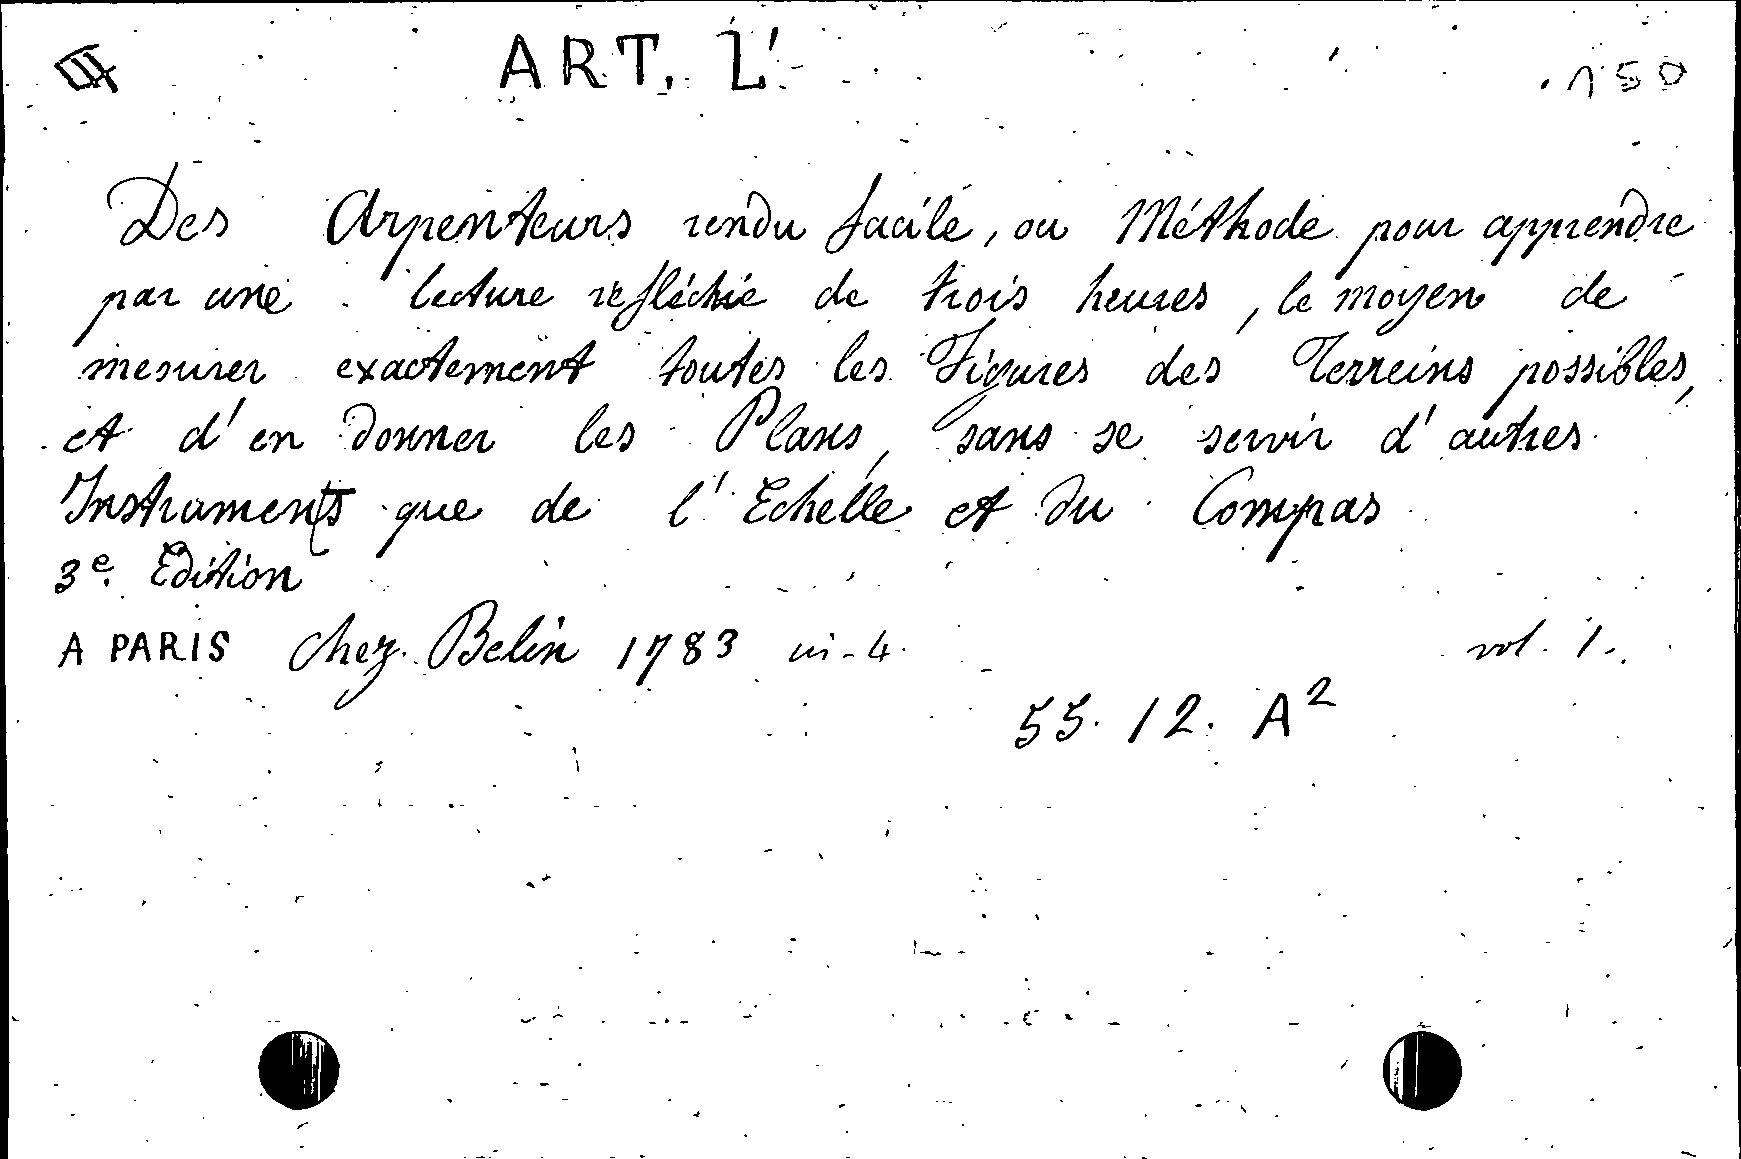 ART. L'
150
Des Arpenteurs rendu facile, ou Méthode pour apprendre
par une lecture refléchie de trois heures, le moyen de
mesurer exactement toutes les Figures des Terreins possibles,
et d'en donner les Plans, sans se servir d'autres
Instruments que de l'Echelle et du Compas
3e. Edition
A PARIS chez Belin 1783 in-4. vol. 1.
55. 12. A²